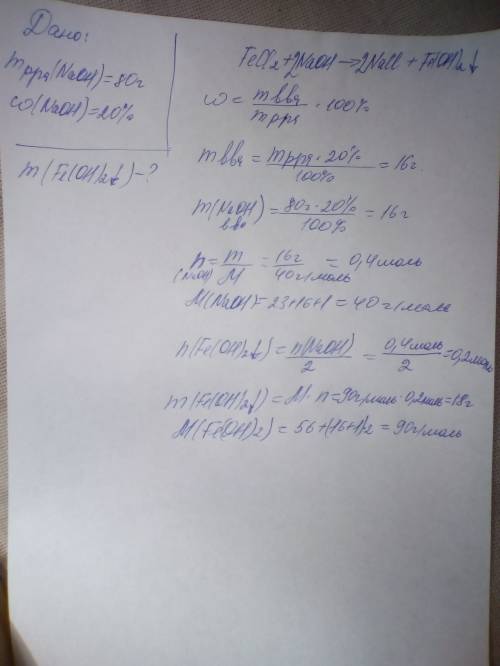 Дано:
mр-ра(NaOH)=80г
ω(NaOH)=20%
m(Fe(OH)₂↓)-?
FeCl₂+2NaOH→2NaCl+Fe(OH)₂↓
ω = mв-ва/mр-ра · 100%
mв-ва = mр-ра · 20%/100% = 16г
m(NaOH)в-ва = 80г · 20%/100% = 16г
n(NaOH) = m/M = 16г/40г/моль = 0,4моль
M(NaOH)=23+16+1=40г/моль
n(Fe(OH)₂↓) = n(NaOH)/2 = 0,4моль/2 =0,2моль
m(Fe(OH)₂↓) = M · n =90г/моль · 0,2моль=18г
M(Fe(OH)₂) = 56+(16+1)·2 = 90г/моль